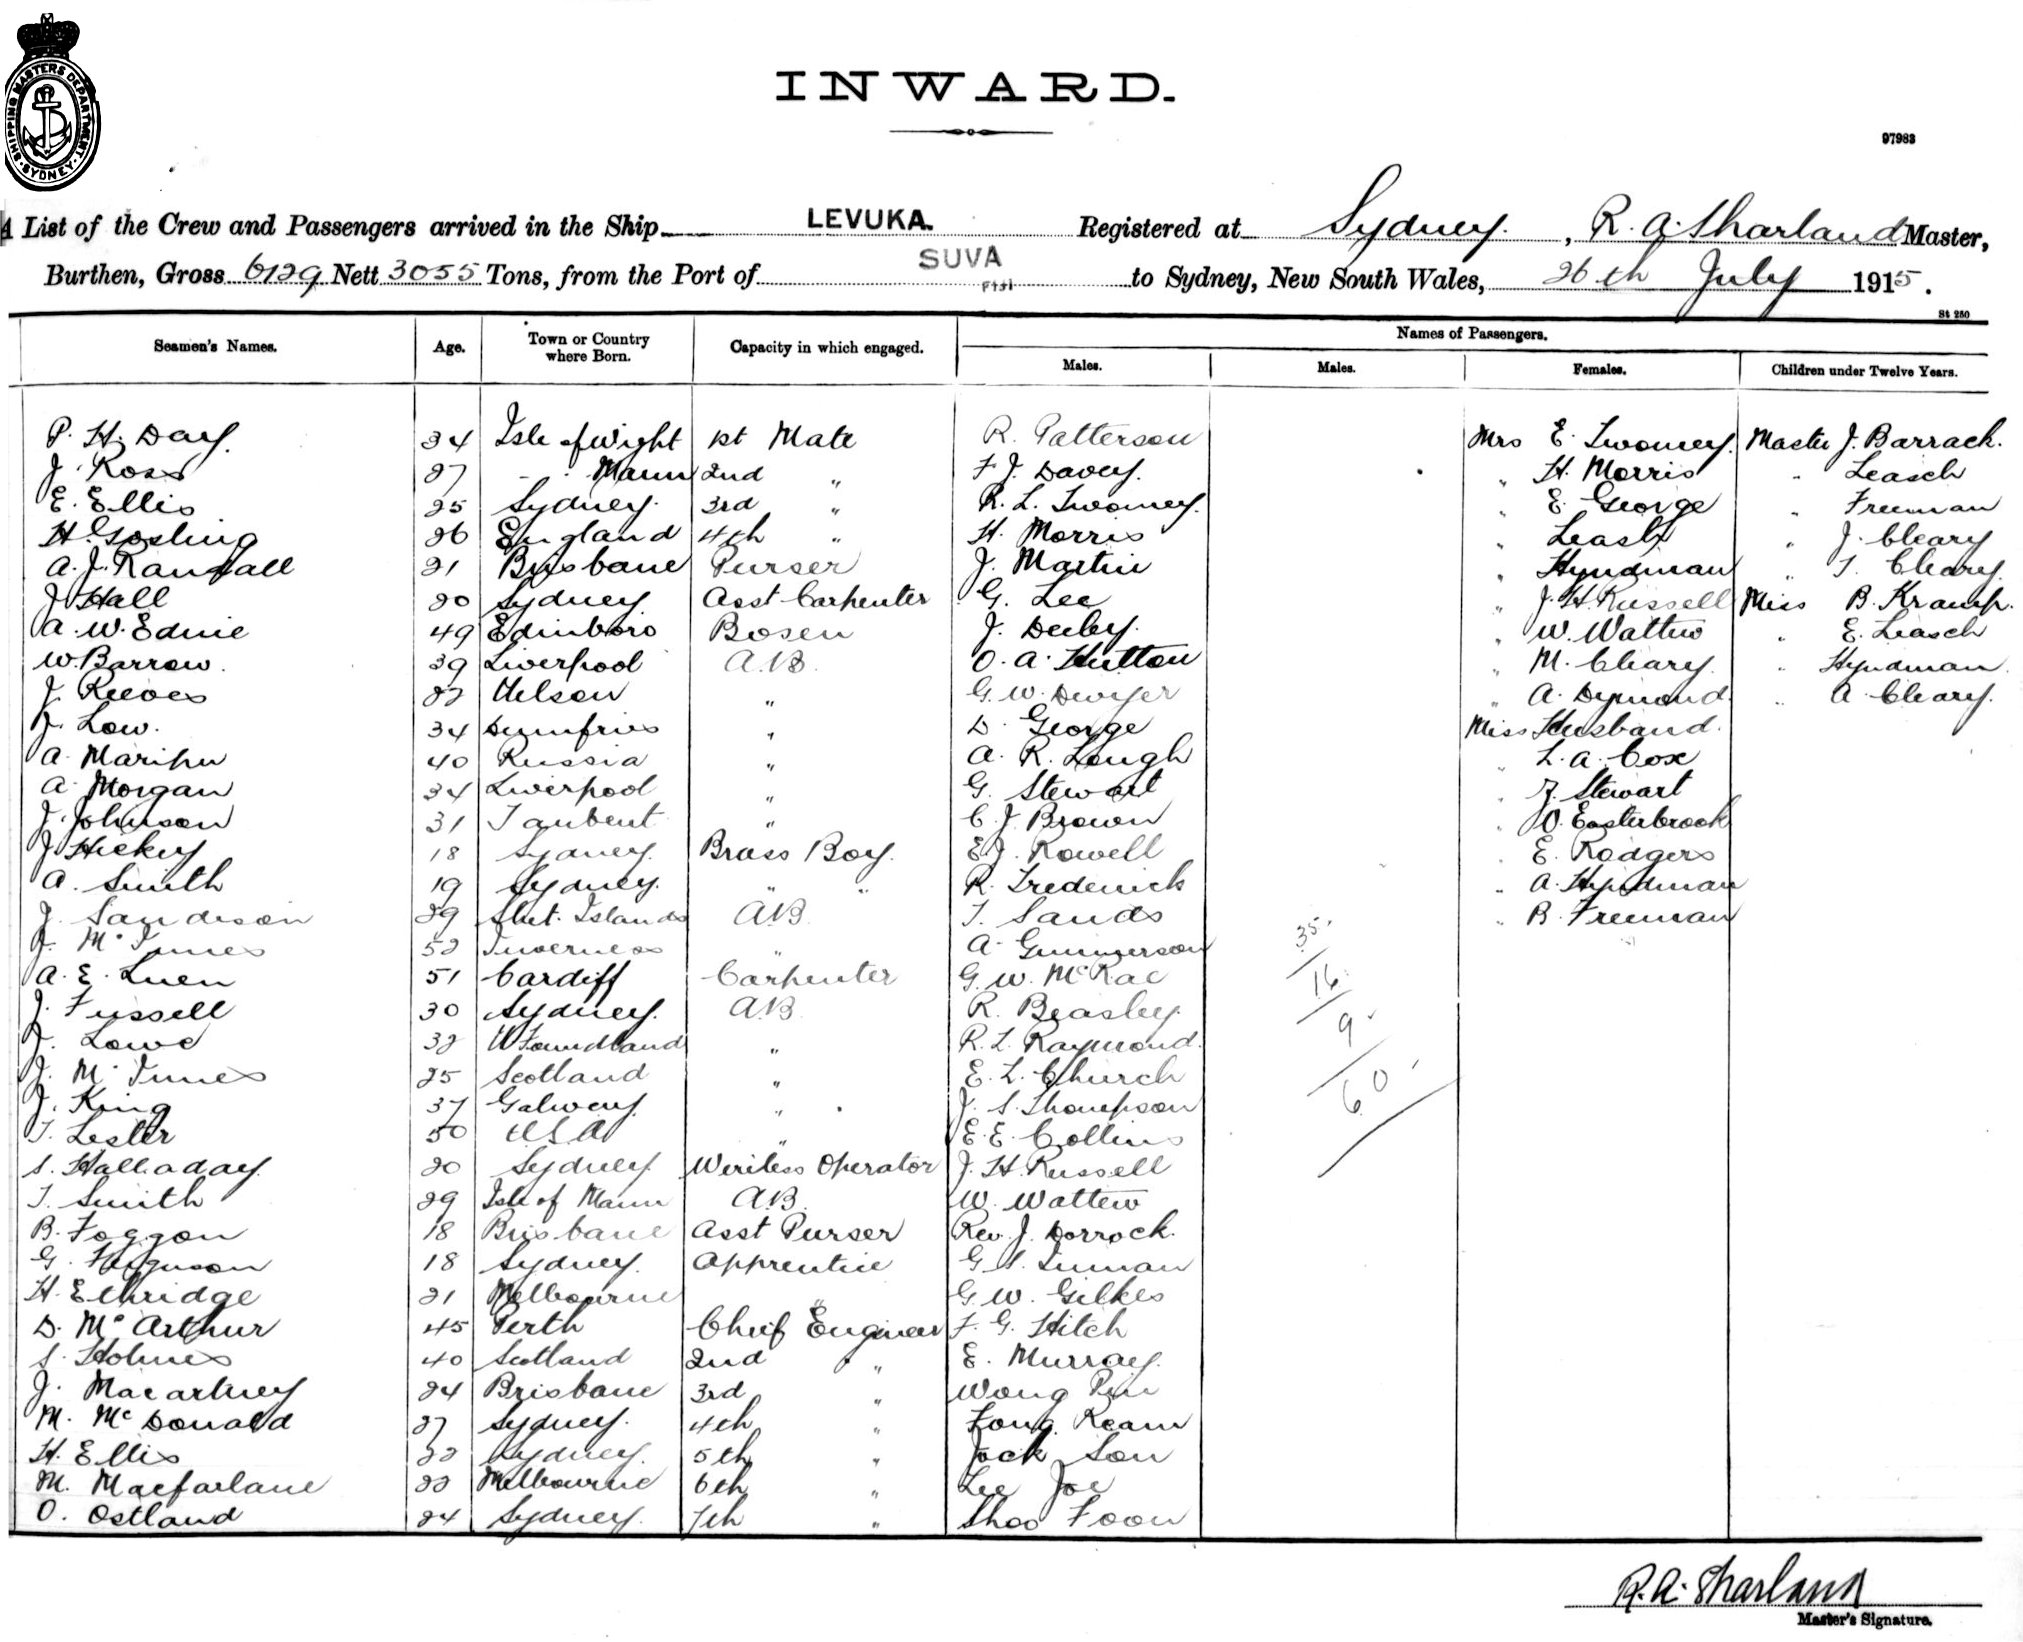 SHIPPING MASTERS DEPARTMENT SYDNEY
INWARD.
97983
A List of the Crew and Passengers arrived in the Ship LEVUKA. Registered at Sydney, R. A. Sharland Master,
Burthen, Gross 6129 Nett 3055 Tons, from the Port of SUVA FIJI to Sydney, New South Wales, 26th July 1915.
St 280
Seamen's Names. Age. Town or Country where Born. Capacity in which engaged. Names of Passengers.
Males. Males. Females. Children under Twelve Years.
P. H. Day. 34 Isle of Wight 1st Mate R. Patterson Mrs E. Twomey. Master J. Barrack.
J. Ross 27 " Mann 2nd " F. J. Davey. " H. Morris " Leasch
E. Ellis 25 Sydney. 3rd " R. L. Twomey. " E. George " Freeman
H. Gosling 26 England 4th " H. Morris " Leash " J. Cleary
A. J. Randall 21 Brisbane Purser J. Martin " Hyndman " T. Cleary.
J Hall 20 Sydney. Asst Carpenter G. Lee " J. H. Russell Miss B. Kramp.
A. W. Ednie 49 Edinboro Bosen J. Deeby. " W. Watten " E. Leasch
W. Barrow. 39 Liverpool A.B. O. A. Hutton " M. Cleary. " Hyndman.
J. Reeves 22 Nelson " G. W. Dwyer " A. Dymond. " A. Cleary.
J. Low. 34 Dumfries " D. George Miss Husband.
A. 40 Russia " A. R. Lough " L. A. Cox
A. Morgan 34 Liverpool " G. Stewart " J. Stewart
J. Johnson 31 " C. J. Brown " O. Easterbrook
J Hickey 18 Sydney. Brass Boy. E. J. Rowell " E. Rodgers
A. Smith 19 Sydney. " " R. Frederick " A. Hyndman
J. Sandison 29 Shet. Islands A.B. T. Sands " B. Freeman
J. McInnes 52 Inverness " A. Gunnerson 35.
A. E. Luen 51 Cardiff Carpenter G. W. McRae 16.
J. Fussell 30 Sydney. A.B. R. Beasley. 9.
J. Lowe 32 NFoundland " R. L. Raymond.
J. McInnes 25 Scotland " E. L. Church 60.
J. King 37 Galway. " J. S. Thompson
T. Lester 50 USA " E. E. Collins
S. Halladay. 20 Sydney Wireless Operator J. H. Russell
T. Smith 29 Isle of Mann A.B. W. Watten
B. Foggon 18 Brisbane Asst Purser Rev. J. Dorrock.
G. Ferguson 18 Sydney. Apprentice G. S. Inman
H. Ethridge 21 Melbourne " G. W. Gilkes
D. McArthur 45 Perth Chief Engineer F. G. Hitch
S. Holmes 40 Scotland 2nd " E. Murray.
J. Macartney 24 Brisbane 3rd " Wong Pin
M. McDonald 27 Sydney. 4th " Fong Ream
H. Ellis 22 Sydney. 5th " Jack Son
M. Macfarlane 22 Melbourne 6th " Lee Joe
O. Ostland 24 Sydney. 7th " Shoo Foon
R. A. Sharland
Master's Signature.